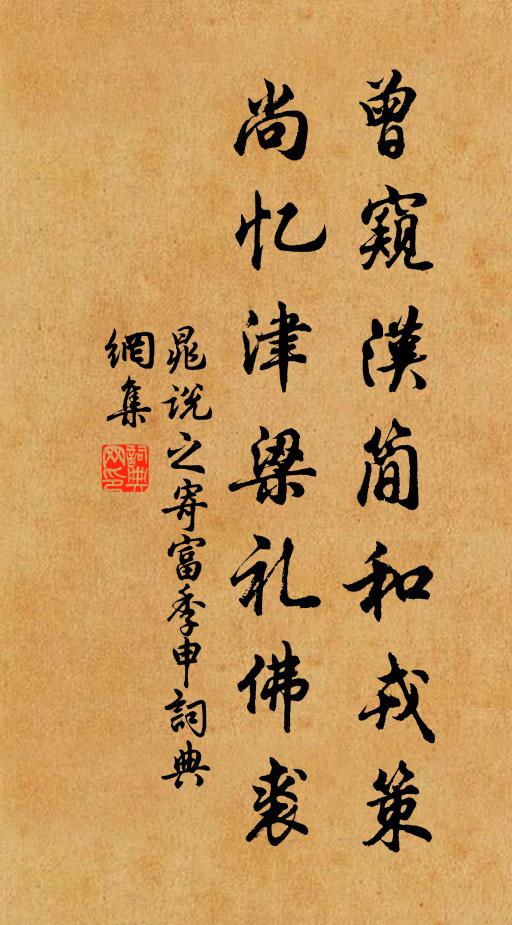 曾窥漢简和戎策
尚忆津梁礼佛裘
晁说之寄富季申詞典
網集
詞典
网印